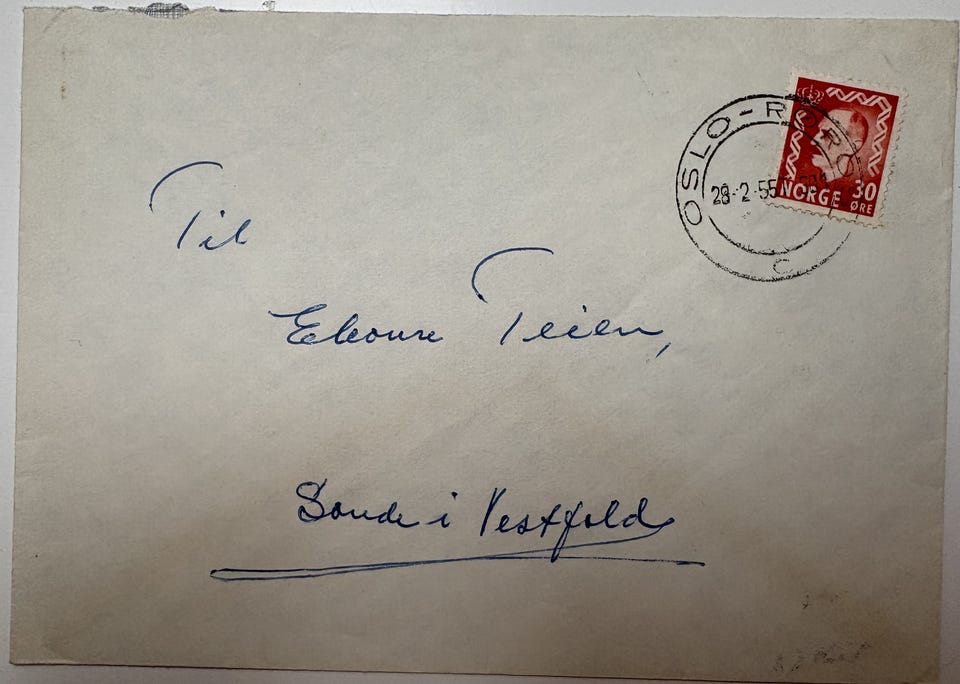 OSLO-RORG
28-2-55
C
NORGE 30
ØRE
Til
Eleonre Teien,
Sande i Vestfold